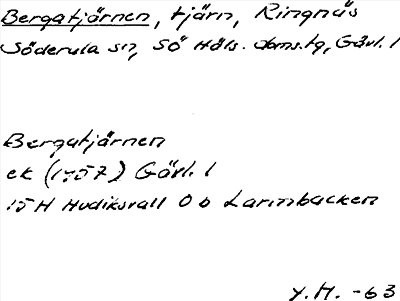 Bergatjärnen, tjärn, Ringnäs
Söderala sn, SÖ Häls. doms.tg, Gävl. l
Bergatjärnen
ek (1957) Gävl. l
15H Hudiksvall 0 b Larmbacken
Y.H. -63